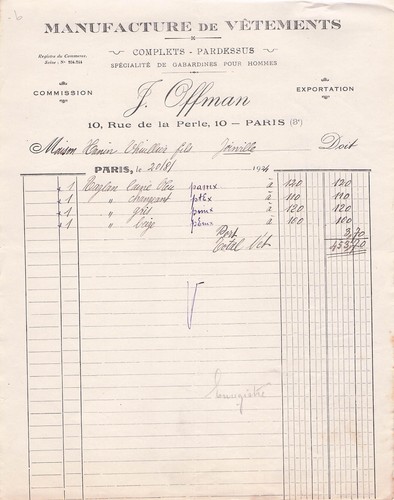 MANUFACTURE DE VÊTEMENTS
COMPLETS - PARDESSUS
Registre du Commerce,
Seine: Nº 254.254
SPÉCIALITÉ DE GABARDINES POUR HOMMES
COMMISSION
EXPORTATION
J. Offman
10, Rue de la Perle, 10 — PARIS (3e)
Maison fils Joinville Doit
PARIS, le 20/8/ 1924
1 Raglan laine bleu à 120 120
1 " changeant à 110 110
1 " gris à 120 120
1 " beige à 100 100
Port 3,70
Total Net 453,70
Enregistré